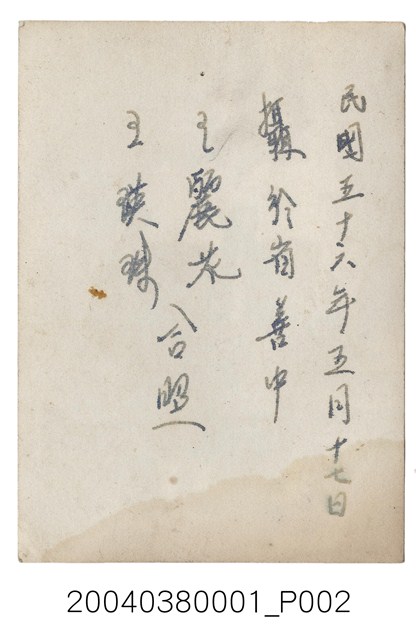 民國五十六年五月十七日
攝於崗善中
王麗花
王瑛珠
合照
20040380001_P002